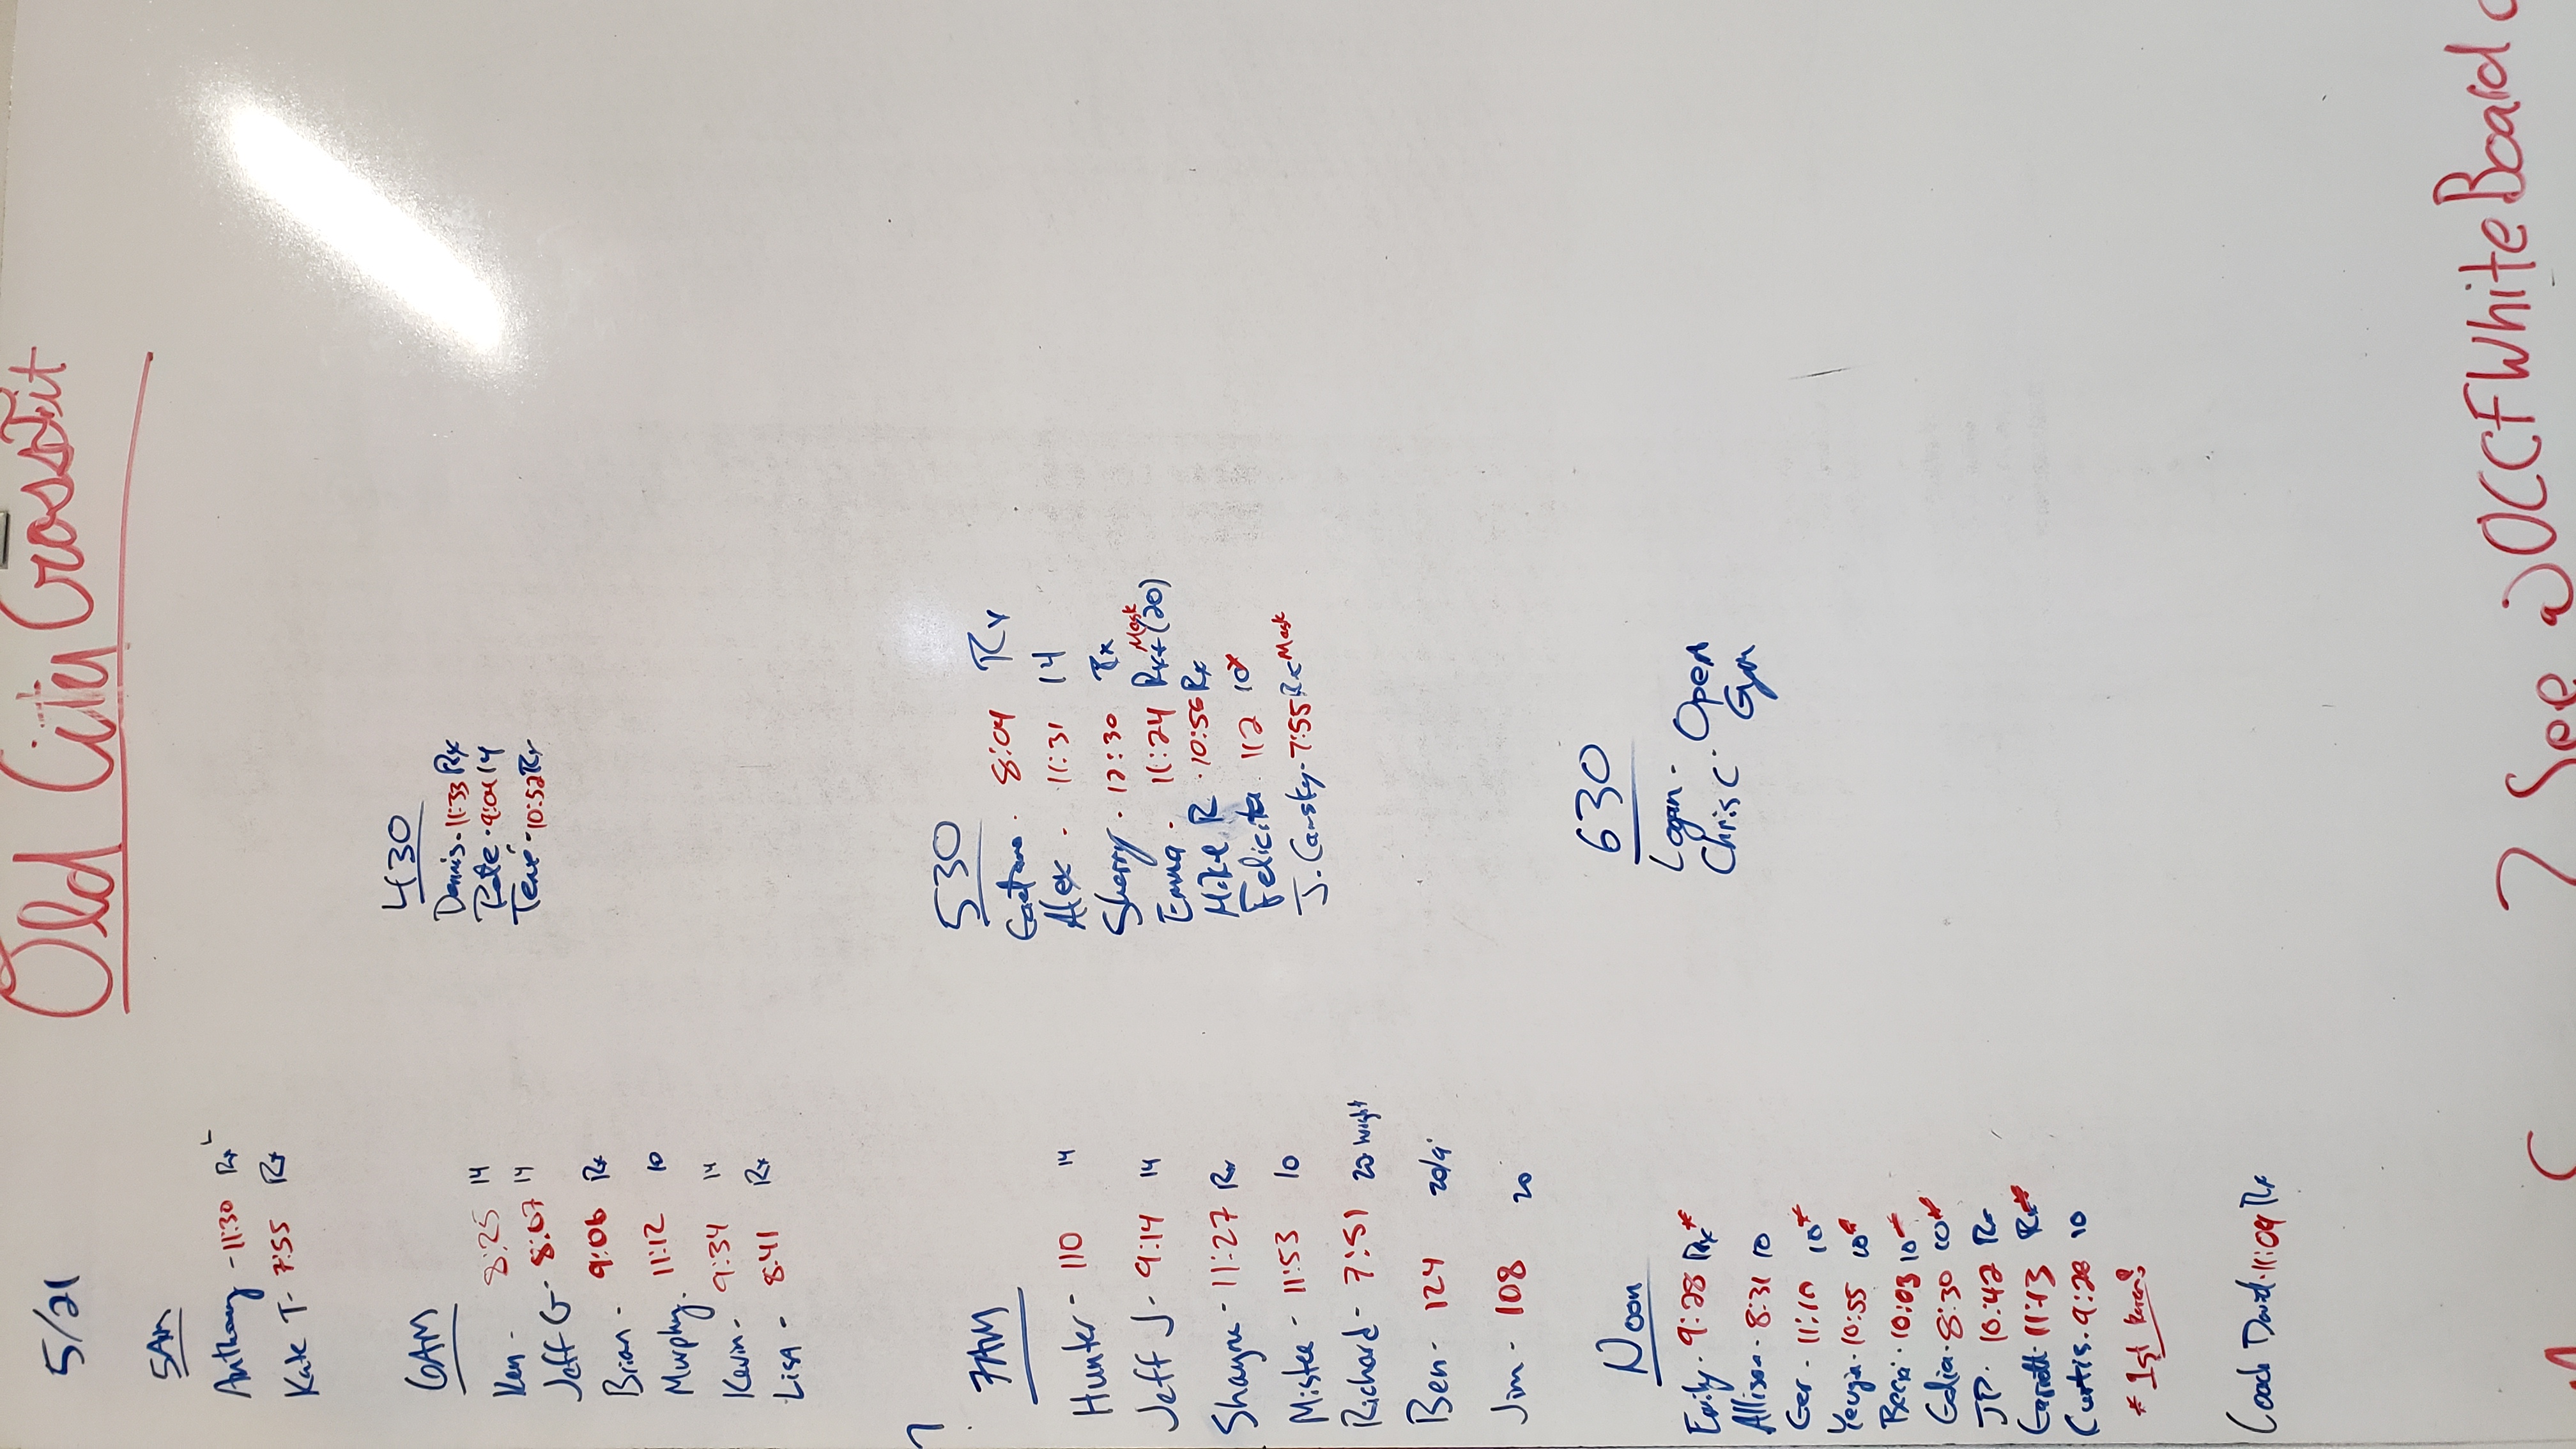 Old City CrossFit
5/21
5AM
Anthony - 11:30 Rx
Kate T - 7:55 Rx
6AM
Ken - 8:25 14
Jeff G - 8:07 14
Brian - 9:06 Rx
Murphy - 11:12 10
Kevin - 9:34 14
Lisa - 8:41 Rx
7AM
Hunter - 110 14
Jeff J - 9:14 14
Shayna - 11:27 Rx
Mistee - 11:53 10
Richard - 7:51 20
Ben - 124 20/9
Jim - 108 20
Noon
Emily - 9:28 Rx*
Allison - 8:31 10
Ger - 10*
10:55 10*
10:03 10*
8:30 10*
JP - 10:42 Rx
Garrett - 11:13 Rx*
Curtis - 9:28 10
* 1st
Coach David - 11:09 Rx
430
Dennis - 11:33 Rx
9:04 14
10:52 Rx
530
Gaetano - 8:04 Rx
Alex - 11:31 14
Sherry - 12:30 Rx
Emma - 11:24 Rx+ (20) Mask
Mike R - 10:56 Rx
Felicita 112 10*
J. Carsky - 7:55 Rx Mask
630
Logan - Open
Chris C - Gym
? See OCCFWhiteBoard